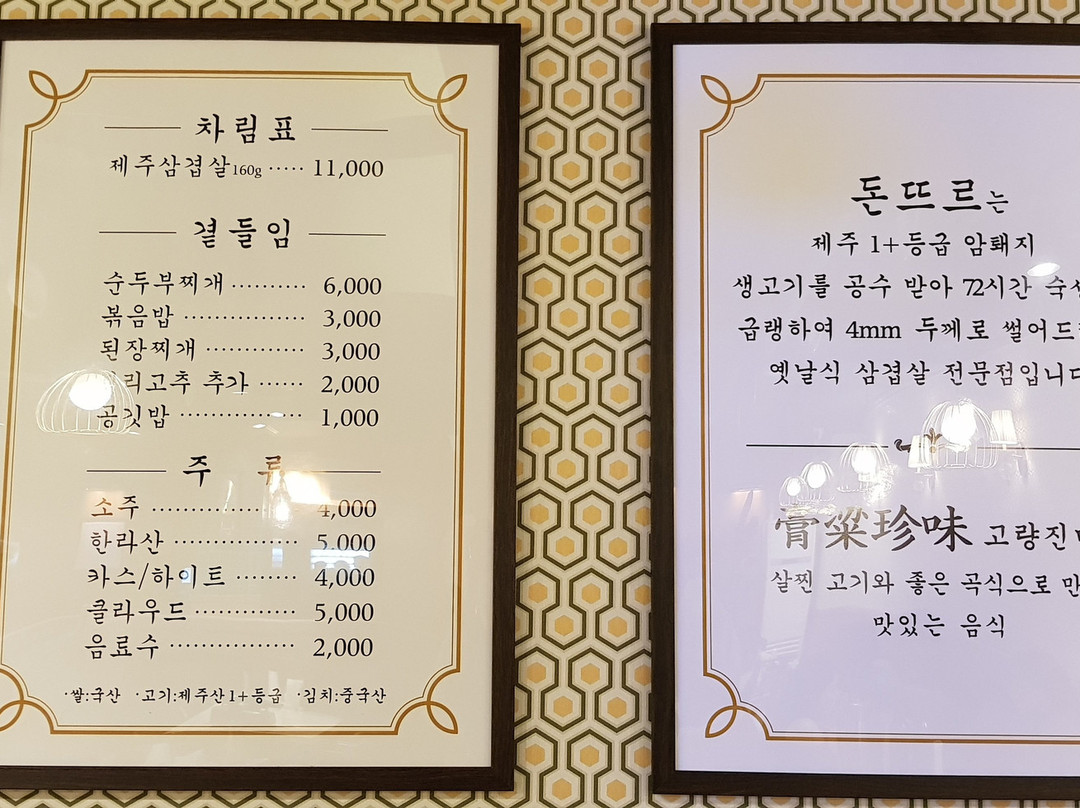 차림표
제주삼겹살160g ····· 11,000
곁들임
순두부찌개 ·········· 6,000
볶음밥 ················ 3,000
된장찌개 ············· 3,000
추가 ······ 2,000
공깃밥 ················ 1,000
주 류
소주 ················ 4,000
한라산 ················ 5,000
카스/하이트 ········ 4,000
클라우드 ············· 5,000
음료수 ················ 2,000
·쌀:국산 ·고기:제주산1+등급 ·김치:중국산
돈뜨르는
제주 1+등급 암퇘지
생고기를 공수 받아 72시간
급랭하여 4mm 두께로 썰어
옛날식 삼겹살 전문점입니다
膏粱珍味 고량진미
살찐 고기와 좋은 곡식으로
맛있는 음식